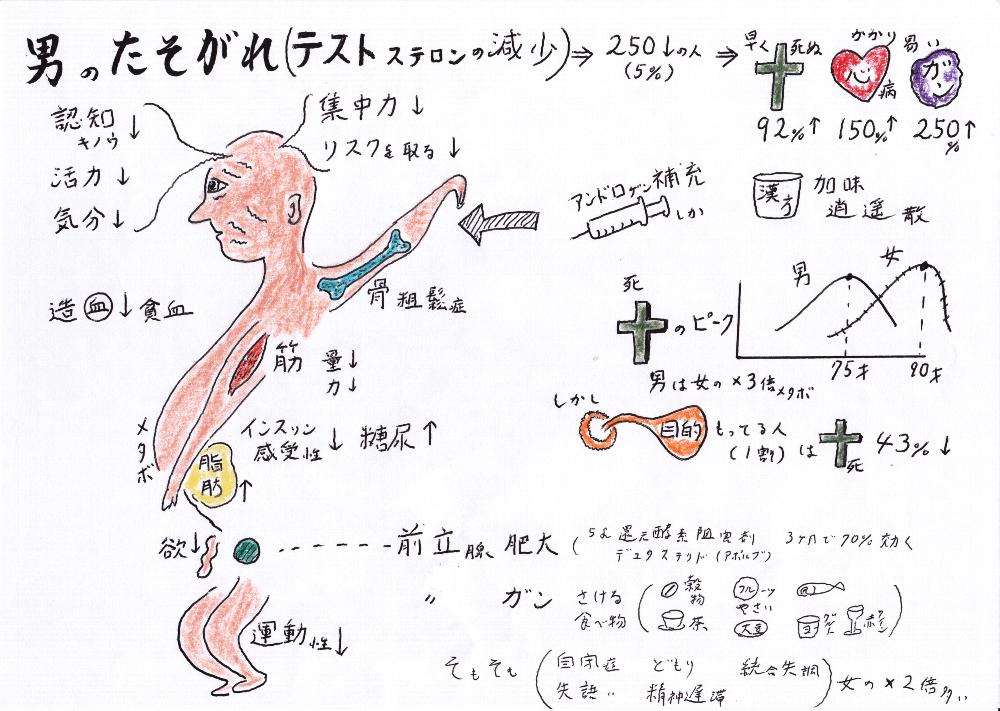 男のたそがれ(テストステロンの減少)⇒ 250↓の人 ⇒
(5%)
早く死ぬ
92%↑
かかり易い
心病
150%↑
ガン
250%↑
認知キノウ↓
活力↓
気分↓
集中力↓
リスクを取る↓
造血↓貧血
骨粗鬆症
筋 量↓
力↓
メタボ
脂肪↑
インスリン感受性↓ 糖尿↑
アンドロゲン補充
しか
漢方 加味逍遥散
死
のピーク
男 女
75才 90才
男は女の×3倍メタボ
しかし
目的 もってる人
(1割)は 死 43%↓
欲↓
------前立腺肥大 (5α還元酵素阻害剤 3ヶ月で70%効く
デュタステリド(アボルブ)
〃 ガン さける食べ物 (穀物 フルーツ
やさい
茶 大豆
運動性↓
そもそも (自閉症 どもり 統合失調
失語〃 精神遅滞) 女の×2倍多い